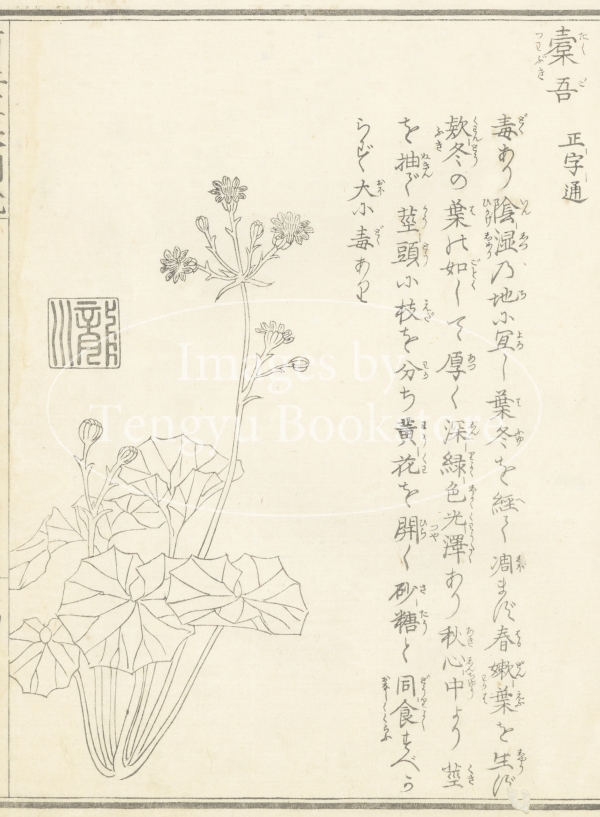 橐吾
たくご
つわぶき
正字通
毒あり陰湿乃地に宜し葉冬を經て凋まず春嫩葉を生ず
款冬の葉の如して厚く深緑色光澤あり秋心中より莖
を抽で莖頭に枝を分ち黄花を開く砂糖と同食すべか
らず大に毒あり
Images by
Tengyu Bookstore